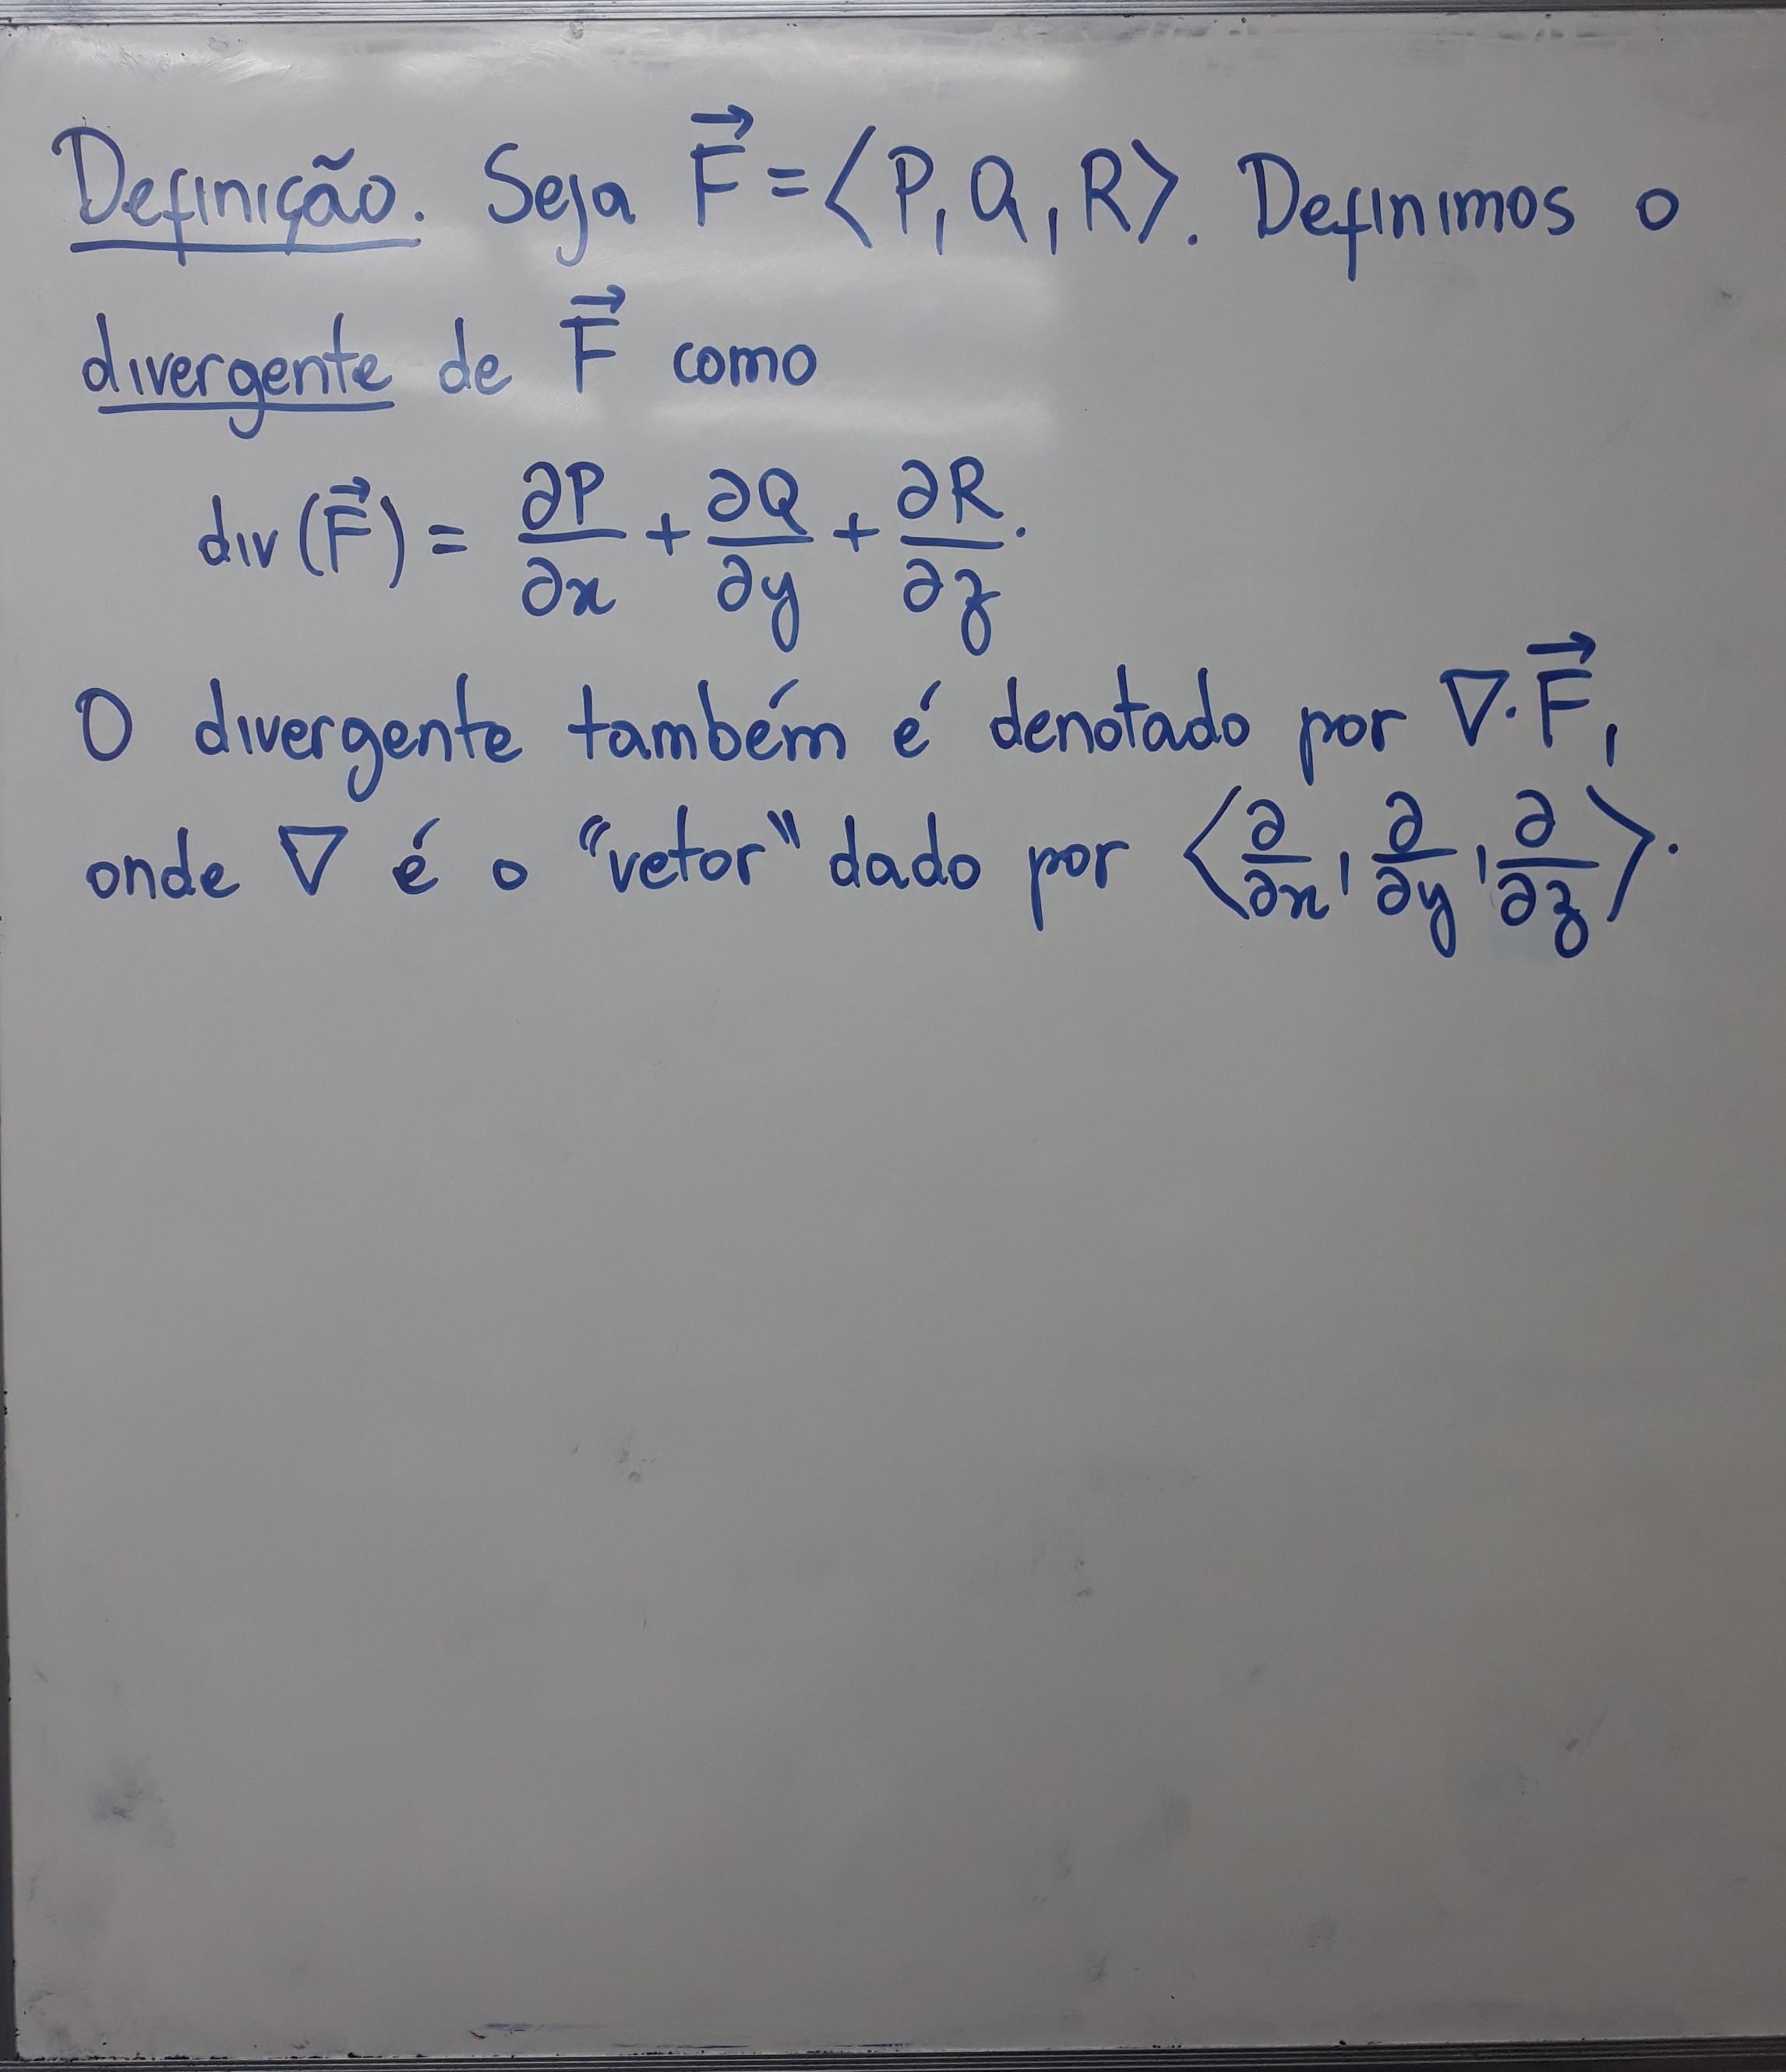 Definição. Seja $\vec{F} = \langle P, Q, R \rangle$. Definimos o
divergente de $\vec{F}$ como
$\text{div}(\vec{F}) = \frac{\partial P}{\partial x} + \frac{\partial Q}{\partial y} + \frac{\partial R}{\partial z}.$
O divergente também é denotado por $\nabla \cdot \vec{F}$,
onde $\nabla$ é o "vetor" dado por $\langle \frac{\partial}{\partial x}, \frac{\partial}{\partial y}, \frac{\partial}{\partial z} \rangle$.